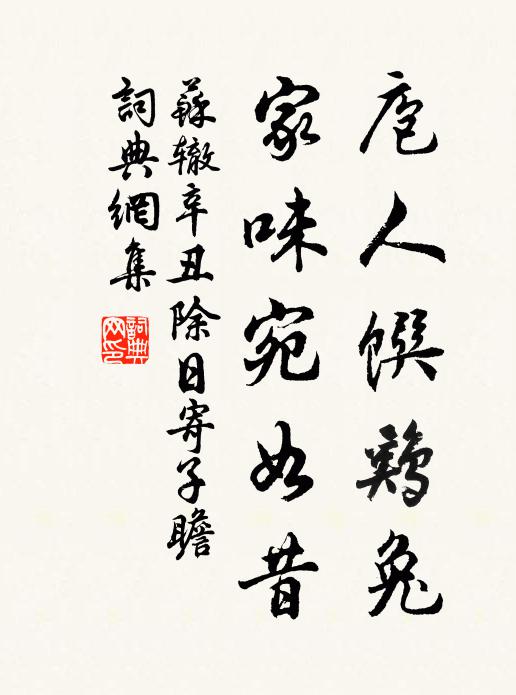 庖人馔鷄兔
家味宛如昔
蘇辙辛丑除日寄子瞻
詞典網集
詞典网印